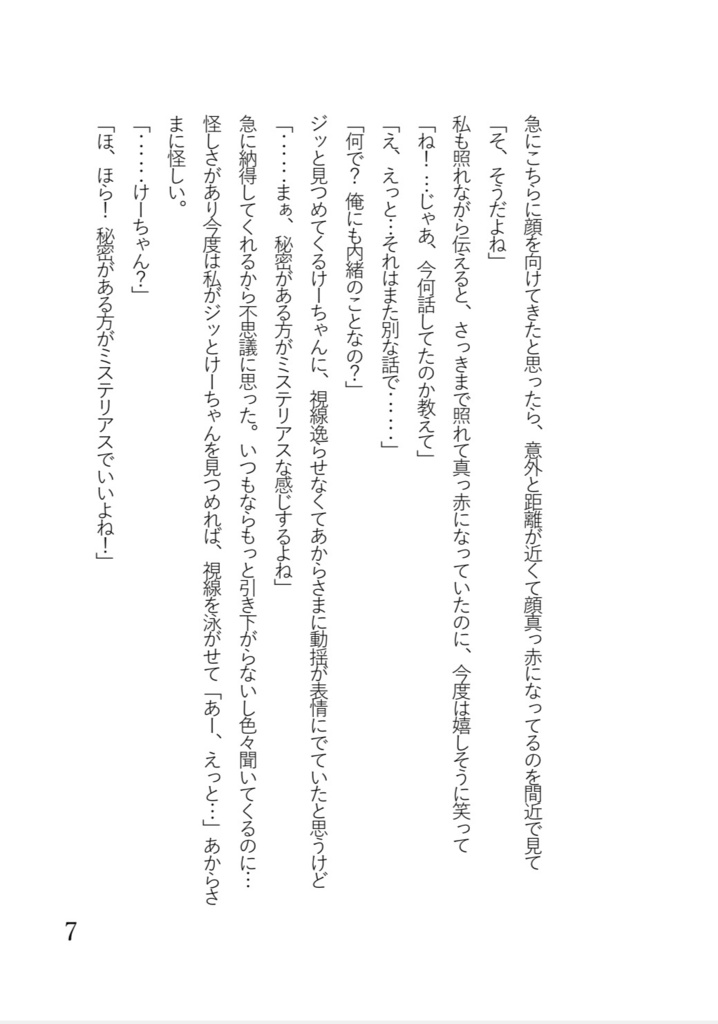 急にこちらに顔を向けてきたと思ったら、意外と距離が近くて顔真っ赤になってるのを間近で見て
「そ、そうだよね」
私も照れながら伝えると、さっきまで照れて真っ赤になっていたのに、今度は嬉しそうに笑って
「ね！…じゃあ、今何話してたのか教えて」
「え、えっと…それはまた別な話で‥‥‥」
「何で？ 俺にも内緒のことなの？」
ジッと見つめてくるけーちゃんに、視線逸らせなくてあからさまに動揺が表情にでていたと思うけど
「‥‥‥まぁ、秘密がある方がミステリアスな感じするよね」
急に納得してくれるから不思議に思った。いつもならもっと引き下がらないし色々聞いてくるのに…
怪しさがあり今度は私がジッとけーちゃんを見つめれば、視線を泳がせて「あー、えっと…」あからさ
まに怪しい。
「‥‥‥けーちゃん？」
「ほ、ほら！ 秘密がある方がミステリアスでいいよね！」
7